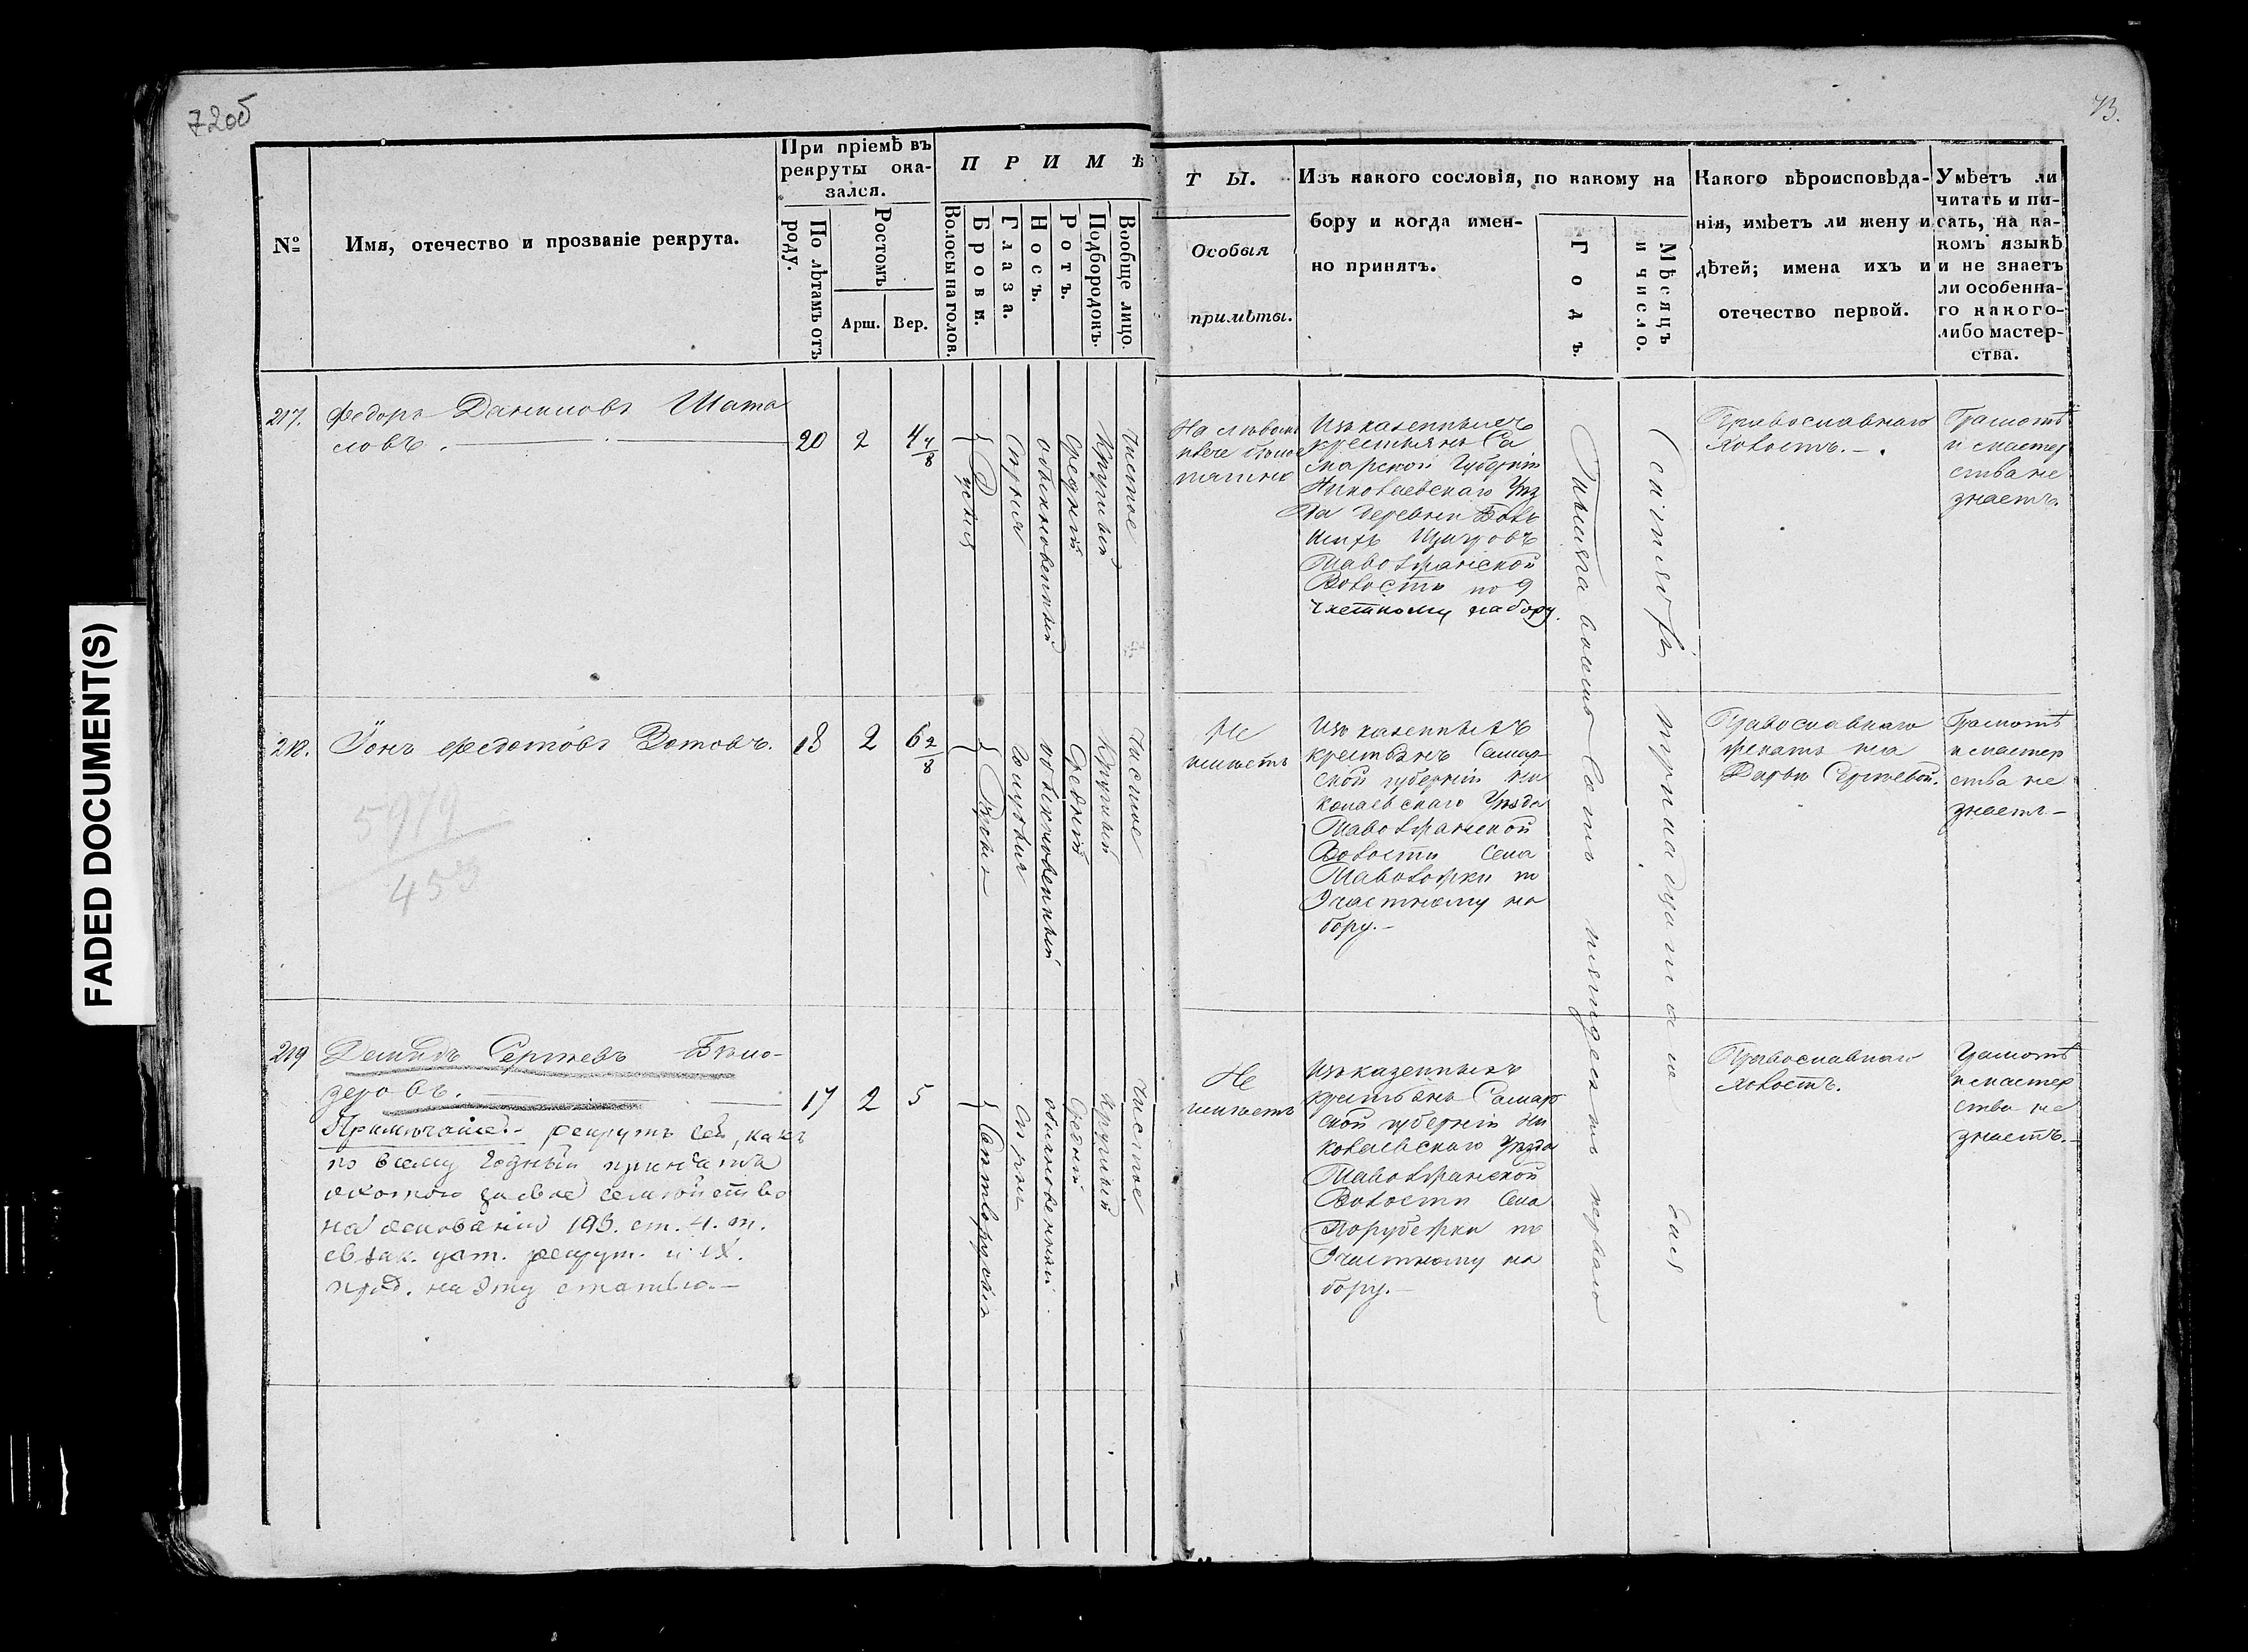 FADED DOCUMENT(S)
72об
73.
№
Имя, отечество и прозваніе рекрута.
При пріемѣ въ
рекруты ока-
зался.
По лѣтамъ отъ
роду.
Ростомъ
Арш.
Вер.
ПРИМѢ
Волосы на голов.
Брови.
Глаза.
Носъ.
Ротъ.
Подбородокъ.
Вообще лицо.
ТЫ.
Особыя
примѣты.
Изъ какого сословія, по какому на
бору и когда имен-
но принятъ.
Годъ.
Мѣсяцъ
и число.
Какого вѣроисповѣда-
нія, имѣетъ ли жену и
дѣтей; имена ихъ и
отечество первой.
Умѣетъ ли
читать и пи-
сать, на ка-
комъ языкѣ
и не знаетъ
ли особенна-
го какого-
либо мастер-
ства.
217.
Федоръ Даниловъ Шата
ловъ.
20
2
4 4/8
Русыя
Сѣрыя
обыкновенный
Средній
Круглый
Чистое
На лѣвомъ
плече белое
пятно
Изъ казенныхъ
крестьянъ Са
марской Губерніи
Николаевскаго Уѣз
да деревни
Волости по 9
частному набору.
Тысяча восемь сотъ пятьдесятъ перваго
Сентября тринадцатаго дня
Православнаго
Холостъ.
Грамотѣ
и мастер
ства не
знаетъ.
218.
Іонъ Федотовъ Зотовъ.
18
2
6 2/8
Русыя
Голубыя
обыкновенный
Средній
Круглый
Чистое
Не
имѣетъ
Изъ казенныхъ
крестьянъ Самар
ской губерніи Ни
колаевскаго Уѣзда
Волости Села
по
9 частному на
бору.
Православнаго
женатъ жена
Дарья Сергѣева.
Грамотѣ
и мастер
ства не
знаетъ
5979
453
219
Демидъ Сергѣевъ Бѣло-
зеровъ.
17
2
5
Примѣчаніе. рекрутъ сей, какъ
по всему годный принятъ
охотою за свое семейство
на основаніи 195. ст. 4. т.
св. зак. уст. рекрут. и IX.
прод. на эту статью.
Светлорусыя
Сѣрыя
обыкновенный
Средній
Круглый
Чистое
Не
имѣетъ
Изъ казенныхъ
крестьянъ Самар
ской губерніи Ни
колаевскаго Уѣзда
Волости Села
Порубежки по
9 частному на
бору.
Православнаго
Холостъ.
Грамотѣ
и мастер
ства не
знаетъ.